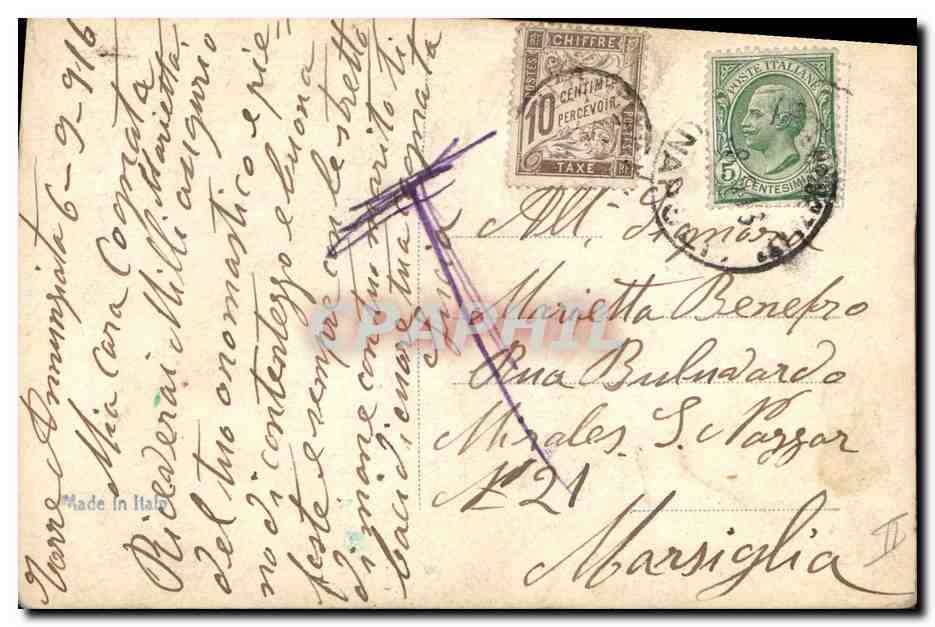 Torre Annunziata 6-9-916
Mia Cara Comata
Marietta
Riceverai Milli auguri o
del tuo onomastico e pie-
no di contentezzo e buona
feste e sempre con le stretto
di mane con tuo marito ti
baci di cuore tua Comata
CHIFFRE
POSTES
10 CENTIMES
À PERCEVOIR
TAXE
POSTE ITALIANE
5
CENTESIMI
T
All. Signora
Marietta Benefro
Rua Buluvardo
Mirales. S. Nazzar
N 21
Marsiglia
Made in Italy
II
CPAPHIL